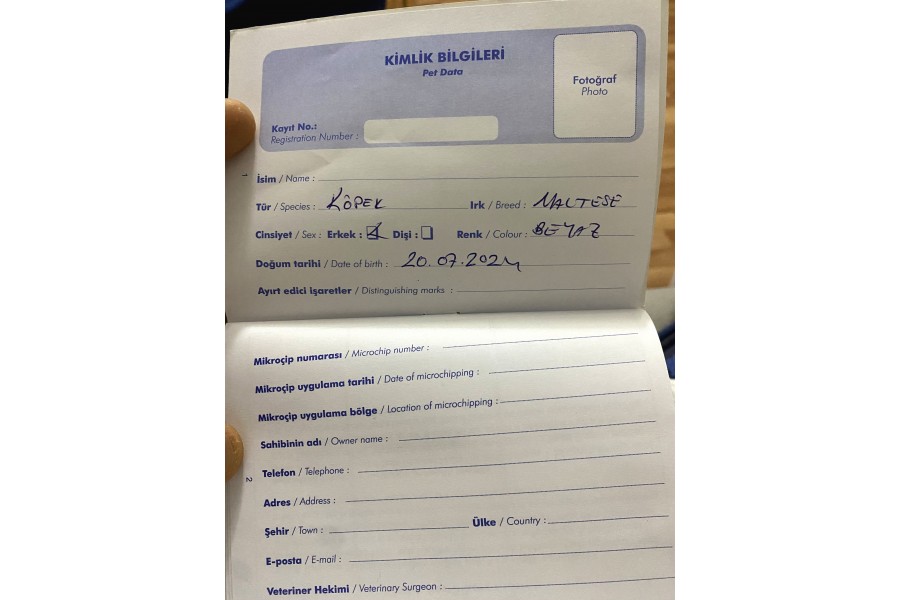 KİMLİK BİLGİLERİ
Pet Data
Fotoğraf
Photo
Kayıt No.:
Registration Number :
1
İsim / Name :
Tür / Species : KÖPEK Irk / Breed : MALTESE
Cinsiyet / Sex : Erkek : Dişi : Renk / Colour : BEYAZ
Doğum tarihi / Date of birth : 20.07.2024
Ayırt edici işaretler / Distinguishing marks :
Mikroçip numarası / Microchip number :
Mikroçip uygulama tarihi / Date of microchipping :
Mikroçip uygulama bölge / Location of microchipping :
Sahibinin adı / Owner name :
Telefon / Telephone :
2
Adres / Address :
Şehir / Town : Ülke / Country :
E-posta / E-mail :
Veteriner Hekimi / Veterinary Surgeon :